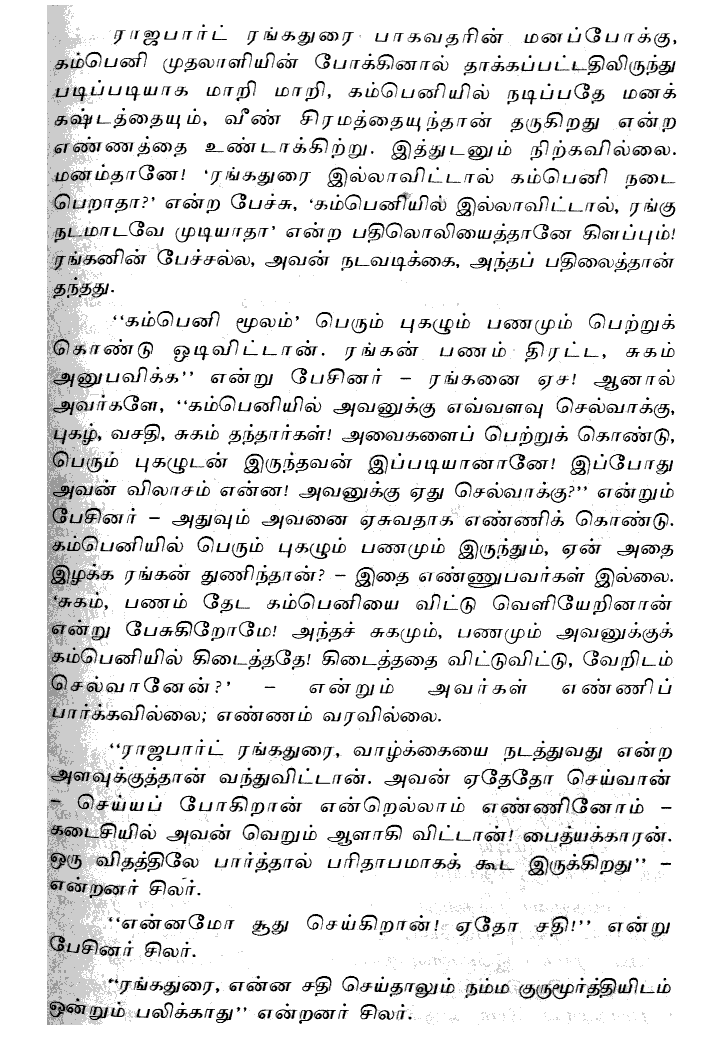 ராஜபார்ட் ரங்கதுரை பாகவதரின் மனப்போக்கு,
கம்பெனி முதலாளியின் போக்கினால் தாக்கப்பட்டதிலிருந்து
படிப்படியாக மாறி மாறி, கம்பெனியில் நடிப்பதே மனக்
கஷ்டத்தையும், வீண் சிரமத்தையுந்தான் தருகிறது என்ற
எண்ணத்தை உண்டாக்கிற்று. இத்துடனும் நிற்கவில்லை.
மனம்தானே! ‘ரங்கதுரை இல்லாவிட்டால் கம்பெனி நடை
பெறாதா?’ என்ற பேச்சு, ‘கம்பெனியில் இல்லாவிட்டால், ரங்கு
நடமாடவே முடியாதா’ என்ற பதிலொலியைத்தானே கிளப்பும்!
ரங்கனின் பேச்சல்ல, அவன் நடவடிக்கை, அந்தப் பதிலைத்தான்
தந்தது.
‘‘கம்பெனி மூலம்’ பெரும் புகழும் பணமும் பெற்றுக்
கொண்டு ஓடிவிட்டான். ரங்கன் பணம் திரட்ட, சுகம்
அனுபவிக்க’’ என்று பேசினர் – ரங்கனை ஏச! ஆனால்
அவர்களே, ‘‘கம்பெனியில் அவனுக்கு எவ்வளவு செல்வாக்கு,
புகழ், வசதி, சுகம் தந்தார்கள்! அவைகளைப் பெற்றுக் கொண்டு,
பெரும் புகழுடன் இருந்தவன் இப்படியானானே! இப்போது
அவன் விலாசம் என்ன! அவனுக்கு ஏது செல்வாக்கு?’’ என்றும்
பேசினர் – அதுவும் அவனை ஏசுவதாக எண்ணிக் கொண்டு.
கம்பெனியில் பெரும் புகழும் பணமும் இருந்தும், ஏன் அதை
இழக்க ரங்கன் துணிந்தான்? – இதை எண்ணுபவர்கள் இல்லை.
‘சுகம், பணம் தேட கம்பெனியை விட்டு வெளியேறினான்
என்று பேசுகிறோமே! அந்தச் சுகமும், பணமும் அவனுக்குக்
கம்பெனியில் கிடைத்ததே! கிடைத்ததை விட்டுவிட்டு, வேறிடம்
செல்வானேன்?’ – என்றும் அவர்கள் எண்ணிப்
பார்க்கவில்லை; எண்ணம் வரவில்லை.
‘‘ராஜபார்ட் ரங்கதுரை, வாழ்க்கையை நடத்துவது என்ற
அளவுக்குத்தான் வந்துவிட்டான். அவன் ஏதேதோ செய்வான்
– செய்யப் போகிறான் என்றெல்லாம் எண்ணினோம் –
கடைசியில் அவன் வெறும் ஆளாகி விட்டான்! பைத்யக்காரன்.
ஒரு விதத்திலே பார்த்தால் பரிதாபமாகக் கூட இருக்கிறது’’ –
என்றனர் சிலர்.
‘‘என்னமோ சூது செய்கிறான்! ஏதோ சதி!’’ என்று
பேசினர் சிலர்.
‘‘ரங்கதுரை, என்ன சதி செய்தாலும் நம்ம குருமூர்த்தியிடம்
ஒன்றும் பலிக்காது’’ என்றனர் சிலர்.